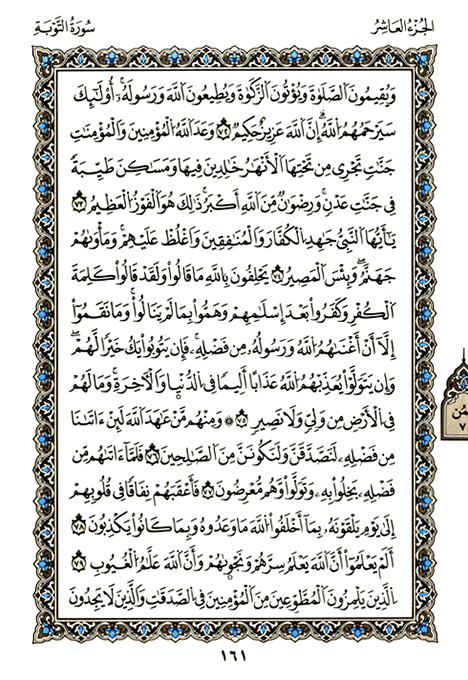 الجُزءُ العَاشِرُ
سُورَةُ التَّوْبَةِ
وَيُقِيمُونَ الصَّلَوٰةَ وَيُؤْتُونَ الزَّكَوٰةَ وَيُطِيعُونَ اللَّهَ وَرَسُولَهُۥٓ أُوْلَٰٓئِكَ
سَيَرْحَمُهُمُ اللَّهُ إِنَّ اللَّهَ عَزِيزٌ حَكِيمٌ ٧٢ وَعَدَ اللَّهُ الْمُؤْمِنِينَ وَالْمُؤْمِنَٰتِ
جَنَّٰتٍ تَجْرِى مِن تَحْتِهَا الْأَنْهَٰرُ خَٰلِدِينَ فِيهَا وَمَسَٰكِنَ طَيِّبَةً
فِى جَنَّٰتِ عَدْنٍ وَرِضْوَٰنٌ مِّنَ اللَّهِ أَكْبَرُ ذَٰلِكَ هُوَ الْفَوْزُ الْعَظِيمُ ٧٣
يَٰٓأَيُّهَا النَّبِىُّ جَٰهِدِ الْكُفَّارَ وَالْمُنَٰفِقِينَ وَاغْلُظْ عَلَيْهِمْ وَمَأْوَىٰهُمْ
جَهَنَّمُ وَبِئْسَ الْمَصِيرُ ٧٤ يَحْلِفُونَ بِاللَّهِ مَا قَالُوا۟ وَلَقَدْ قَالُوا۟ كَلِمَةَ
الْكُفْرِ وَكَفَرُوا۟ بَعْدَ إِسْلَٰمِهِمْ وَهَمُّوا۟ بِمَا لَمْ يَنَالُوا۟ وَمَا نَقَمُوٓا۟
إِلَّآ أَنْ أَغْنَىٰهُمُ اللَّهُ وَرَسُولُهُۥ مِن فَضْلِهِۦ فَإِن يَتُوبُوا۟ يَكُ خَيْرًا لَّهُمْ
وَإِن يَتَوَلَّوْا۟ يُعَذِّبْهُمُ اللَّهُ عَذَابًا أَلِيمًا فِى الدُّنْيَا وَالْأَخِرَةِ وَمَا لَهُمْ
فِى الْأَرْضِ مِن وَلِىٍّ وَلَا نَصِيرٍ ٧٥ وَمِنْهُم مَّنْ عَٰهَدَ اللَّهَ لَئِنْ ءَاتَىٰنَا
مِن فَضْلِهِۦ لَنَصَّدَّقَنَّ وَلَنَكُونَنَّ مِنَ الصَّٰلِحِينَ ٧٦ فَلَمَّآ ءَاتَىٰهُم مِّن
فَضْلِهِۦ بَخِلُوا۟ بِهِۦ وَتَوَلَّوا۟ وَّهُم مُّعْرِضُونَ ٧٧ فَأَعْقَبَهُمْ نِفَاقًا فِى قُلُوبِهِمْ
إِلَىٰ يَوْمِ يَلْقَوْنَهُۥ بِمَآ أَخْلَفُوا۟ اللَّهَ مَا وَعَدُوهُ وَبِمَا كَانُوا۟ يَكْذِبُونَ ٧٨
أَلَمْ يَعْلَمُوٓا۟ أَنَّ اللَّهَ يَعْلَمُ سِرَّهُمْ وَنَجْوَىٰهُمْ وَأَنَّ اللَّهَ عَلَّٰمُ الْغُيُوبِ ٧٩
الَّذِينَ يَلْمِزُونَ الْمُطَّوِّعِينَ مِنَ الْمُؤْمِنِينَ فِى الصَّدَقَٰتِ وَالَّذِينَ لَا يَجِدُونَ
١٦١